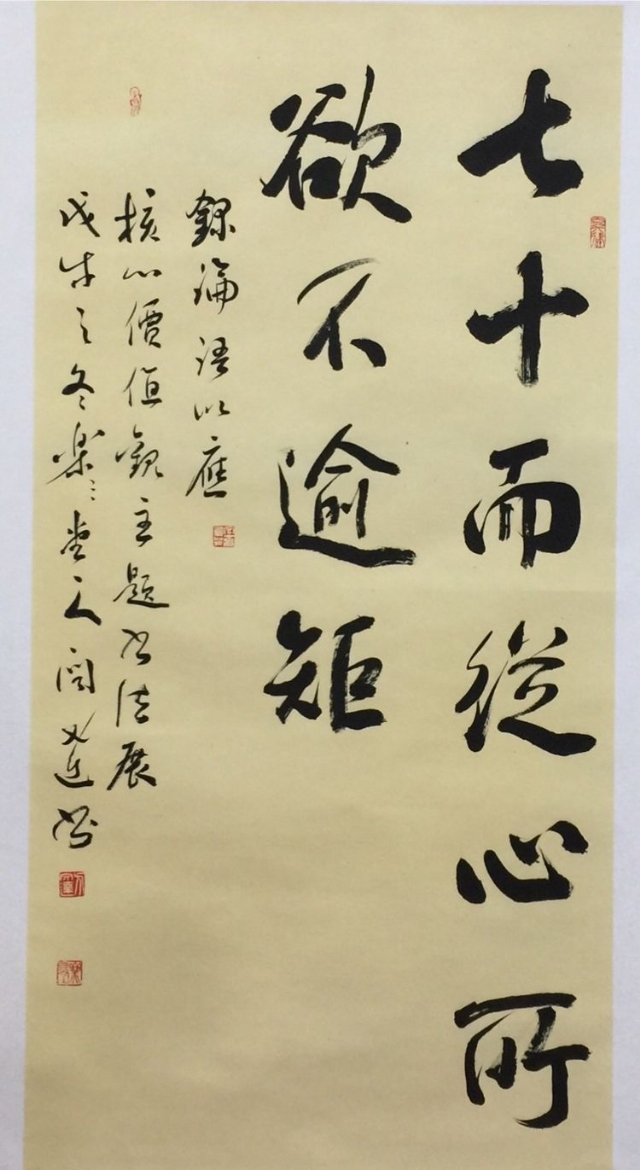 七十而從心所
欲不逾矩
錄論語以應
核心價值觀主題书法展
戊戌之冬樂樂堂主人閆